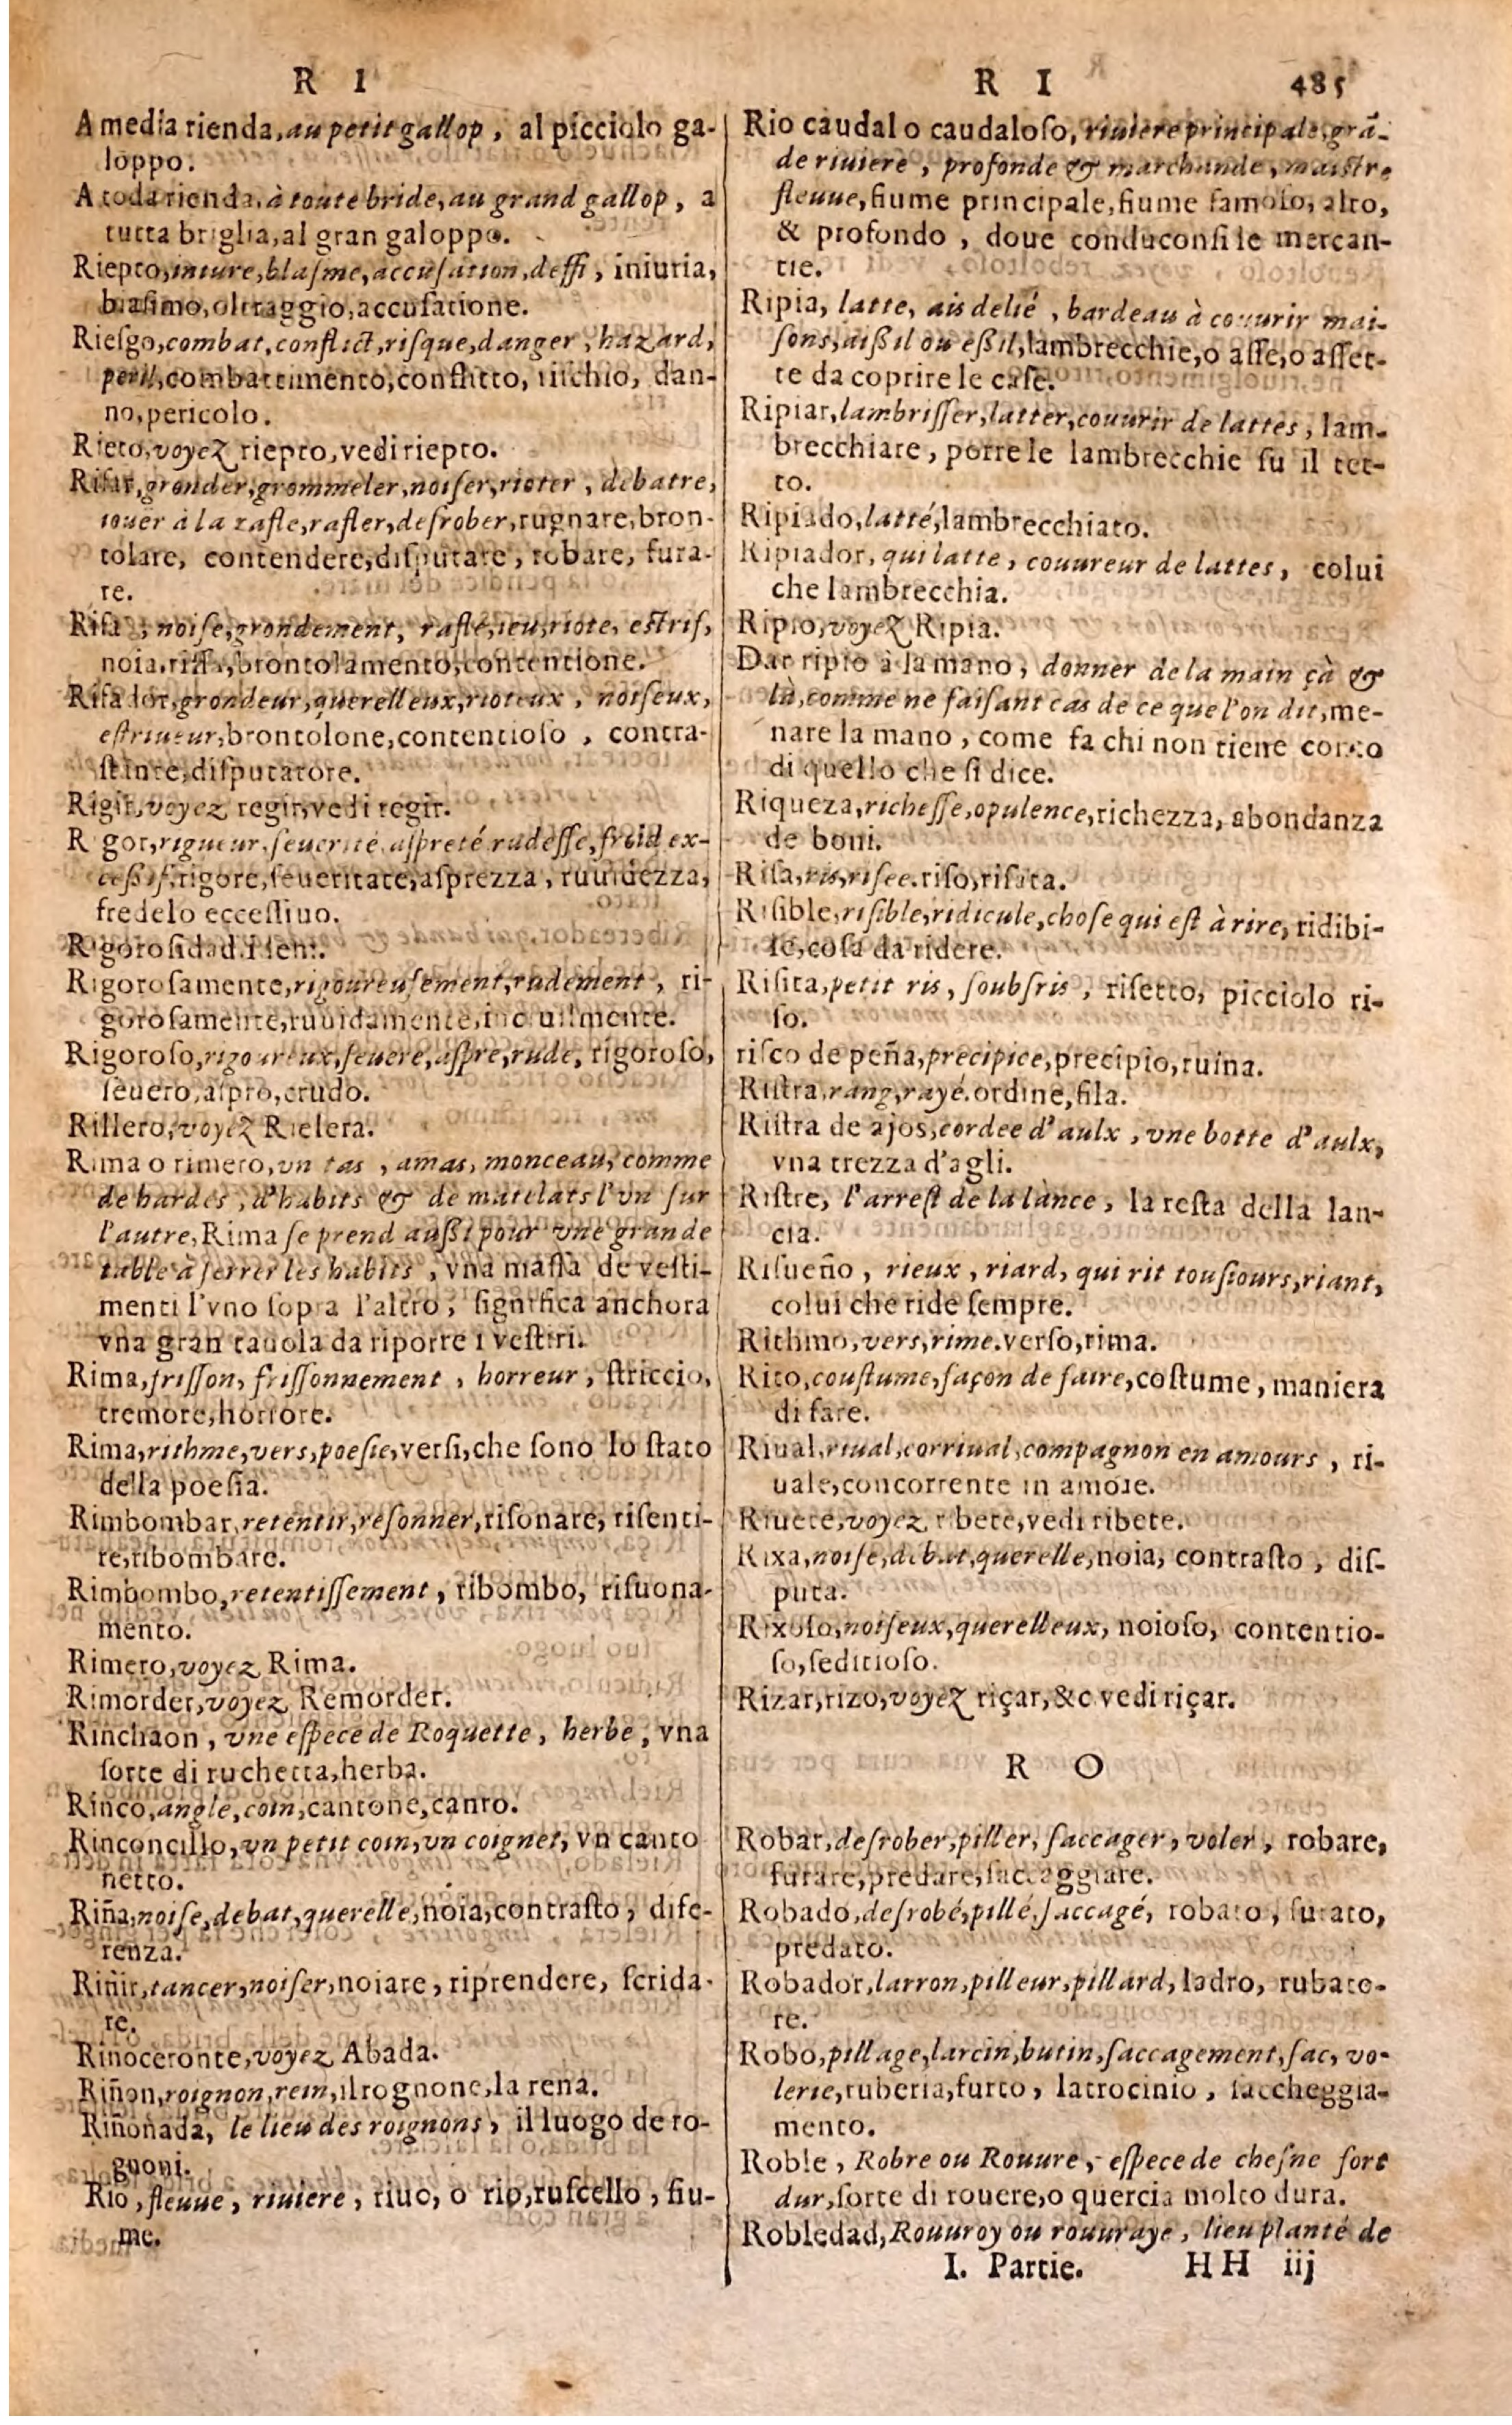 R I
A media rienda, au petit gallop, al picciolo ga-
loppo.
A toda rienda, à toute bride, au grand gallop, a
tutta briglia, al gran galoppo.
Riepto, iniure, blaſme, accuſation, deffi, iniuria,
biaſimo, oltraggio, accuſatione.
Rieſgo, combat, conflict, riſque, danger, hazard,
peril, combattimento, conflitto, riſchio, dan-
no, pericolo.
Rieto, voyez riepto, vedi riepto.
Rifar, gronder, grommeler, noiſer, rioter, debatre,
iouer à la rafle, rafler, deſrober, rugnare, bron-
tolare, contendere, diſputare, robare, fura-
re.
Rifa, noiſe, grondement, rafle, ieu, riote, eſtrif,
noia, riffa, brontolamento, contentione.
Rifador, grondeur, querelleux, rioteux, noiſeux,
eſtriueur, brontolone, contentioſo, contra-
ſtante, diſputatore.
Rigir, voyez regir, vedi regir.
R gor, rigueur, ſeuerité, aſpreté rudeſſe, froid ex-
ceßif, rigore, ſeueritate, aſprezza, ruuidezza,
fredelo ecceſſiuo.
Rigoroſidad. Idem.
Rigoroſamente, rigoureuſement, rudement, ri-
goroſamente, ruuidamente, inciuilmente.
Rigoroſo, rigoureux, ſeuere, aſpre, rude, rigoroſo,
ſeuero, aſpro, crudo.
Rillero, voyez Rielera.
Rima o rimero, vn tas, amas, monceau, comme
de hardes, d'habits & de matelats l'vn ſur
l'autre, Rima ſe prend außi pour vne grande
table à ſerrer les habits, vna maſſa de veſti-
menti l'vno ſopra l'altro, ſignifica anchora
vna gran tauola da riporre i veſtiri.
Rima, friſſon, friſſonnement, horreur, ſtriccio,
tremore, horrore.
Rima, rithme, vers, poeſie, verſi, che ſono lo ſtato
della poeſia.
Rimbombar, retentir, reſonner, riſonare, riſenti-
re, ribombare.
Rimbombo, retentiſſement, ribombo, riſuona-
mento.
Rimero, voyez Rima.
Rimorder, voyez Remorder.
Rinchaon, vne eſpece de Roquette, herbe, vna
ſorte di ruchetta, herba.
Rinco, angle, coin, cantone, canto.
Rinconcillo, vn petit coin, vn coignet, vn canto
netto.
Riña, noiſe, debat, querelle, noia, contraſto, dife-
renza.
Riñir, tancer, noiſer, noiare, riprendere, ſcrida-
re.
Rinoceronte, voyez Abada.
Riñon, roignon, rein, il rognone, la rena.
Riñonada, le lieu des roignons, il luogo de ro-
gnoni.
Rio, fleuue, riuiere, riuo, o rio, ruſcello, fiu-
me.
R I 485
Rio caudal o caudaloſo, riuiere principale, grã-
de riuiere, profonde & marchande, maiſtre
fleuue, fiume principale, fiume famoſo, alto,
& profondo, doue conduconſi le mercan-
tie.
Ripia, latte, ais delié, bardeau à couurir mai-
ſons, aißil ou eßil, lambrecchie, o aſſe, o aſſet-
te da coprire le caſe.
Ripiar, lambriſſer, latter, couurir de lattes, lam-
brecchiare, porre le lambrecchie ſu il tet-
to.
Ripiado, latté, lambrecchiato.
Ripiador, qui latte, couureur de lattes, colui
che lambrecchia.
Ripio, voyez Ripia.
Dar ripio à la mano, donner de la main çà &
là, comme ne faiſant cas de ce que l'on dit, me-
nare la mano, come fa chi non tiene conto
di quello che ſi dice.
Riqueza, richeſſe, opulence, richezza, abondanza
de boni.
Riſa, ris, riſee. riſo, riſata.
Riſible, riſible, ridicule, choſe qui eſt à rire, ridibi-
le, coſa da ridere.
Riſita, petit ris, ſoubſris, riſetto, picciolo ri-
ſo.
riſco de peña, precipice, precipio, ruina.
Riſtra, rang, rayé. ordine, fila.
Riſtra de ajos, cordee d'aulx, vne botte d'aulx,
vna trezza d'agli.
Riſtre, l'arreſt de la lance, la reſta della lan-
cia.
Riſueño, rieux, riard, qui rit touſiours, riant,
colui che ride ſempre.
Rithmo, vers, rime. verſo, rima.
Rito, couſtume, façon de faire, coſtume, maniera
di fare.
Riual, riual, corriual, compagnon en amours, ri-
uale, concorrente in amore.
Riuete, voyez ribete, vedi ribete.
Rixa, noiſe, debat, querelle, noia, contraſto, diſ-
puta.
Rixoſo, noiſeux, querelleux, noioſo, contentio-
ſo, ſeditioſo.
Rizar, rizo, voyez riçar, &c vedi riçar.
R O
Robar, deſrober, piller, ſaccager, voler, robare,
furare, predare, ſaccaggiare.
Robado, deſrobé, pillé, ſaccagé, robato, furato,
predato.
Robador, larron, pilleur, pillard, ladro, rubato-
re.
Robo, pillage, larcin, butin, ſaccagement, ſac, vo-
lerie, ruberia, furto, latrocinio, ſaccheggia-
mento.
Roble, Robre ou Rouure, eſpece de cheſne fort
dur, ſorte di rouere, o quercia molto dura.
Robledad, Rouuroy ou rouuraye, lieu planté de
I. Partie. HH iij